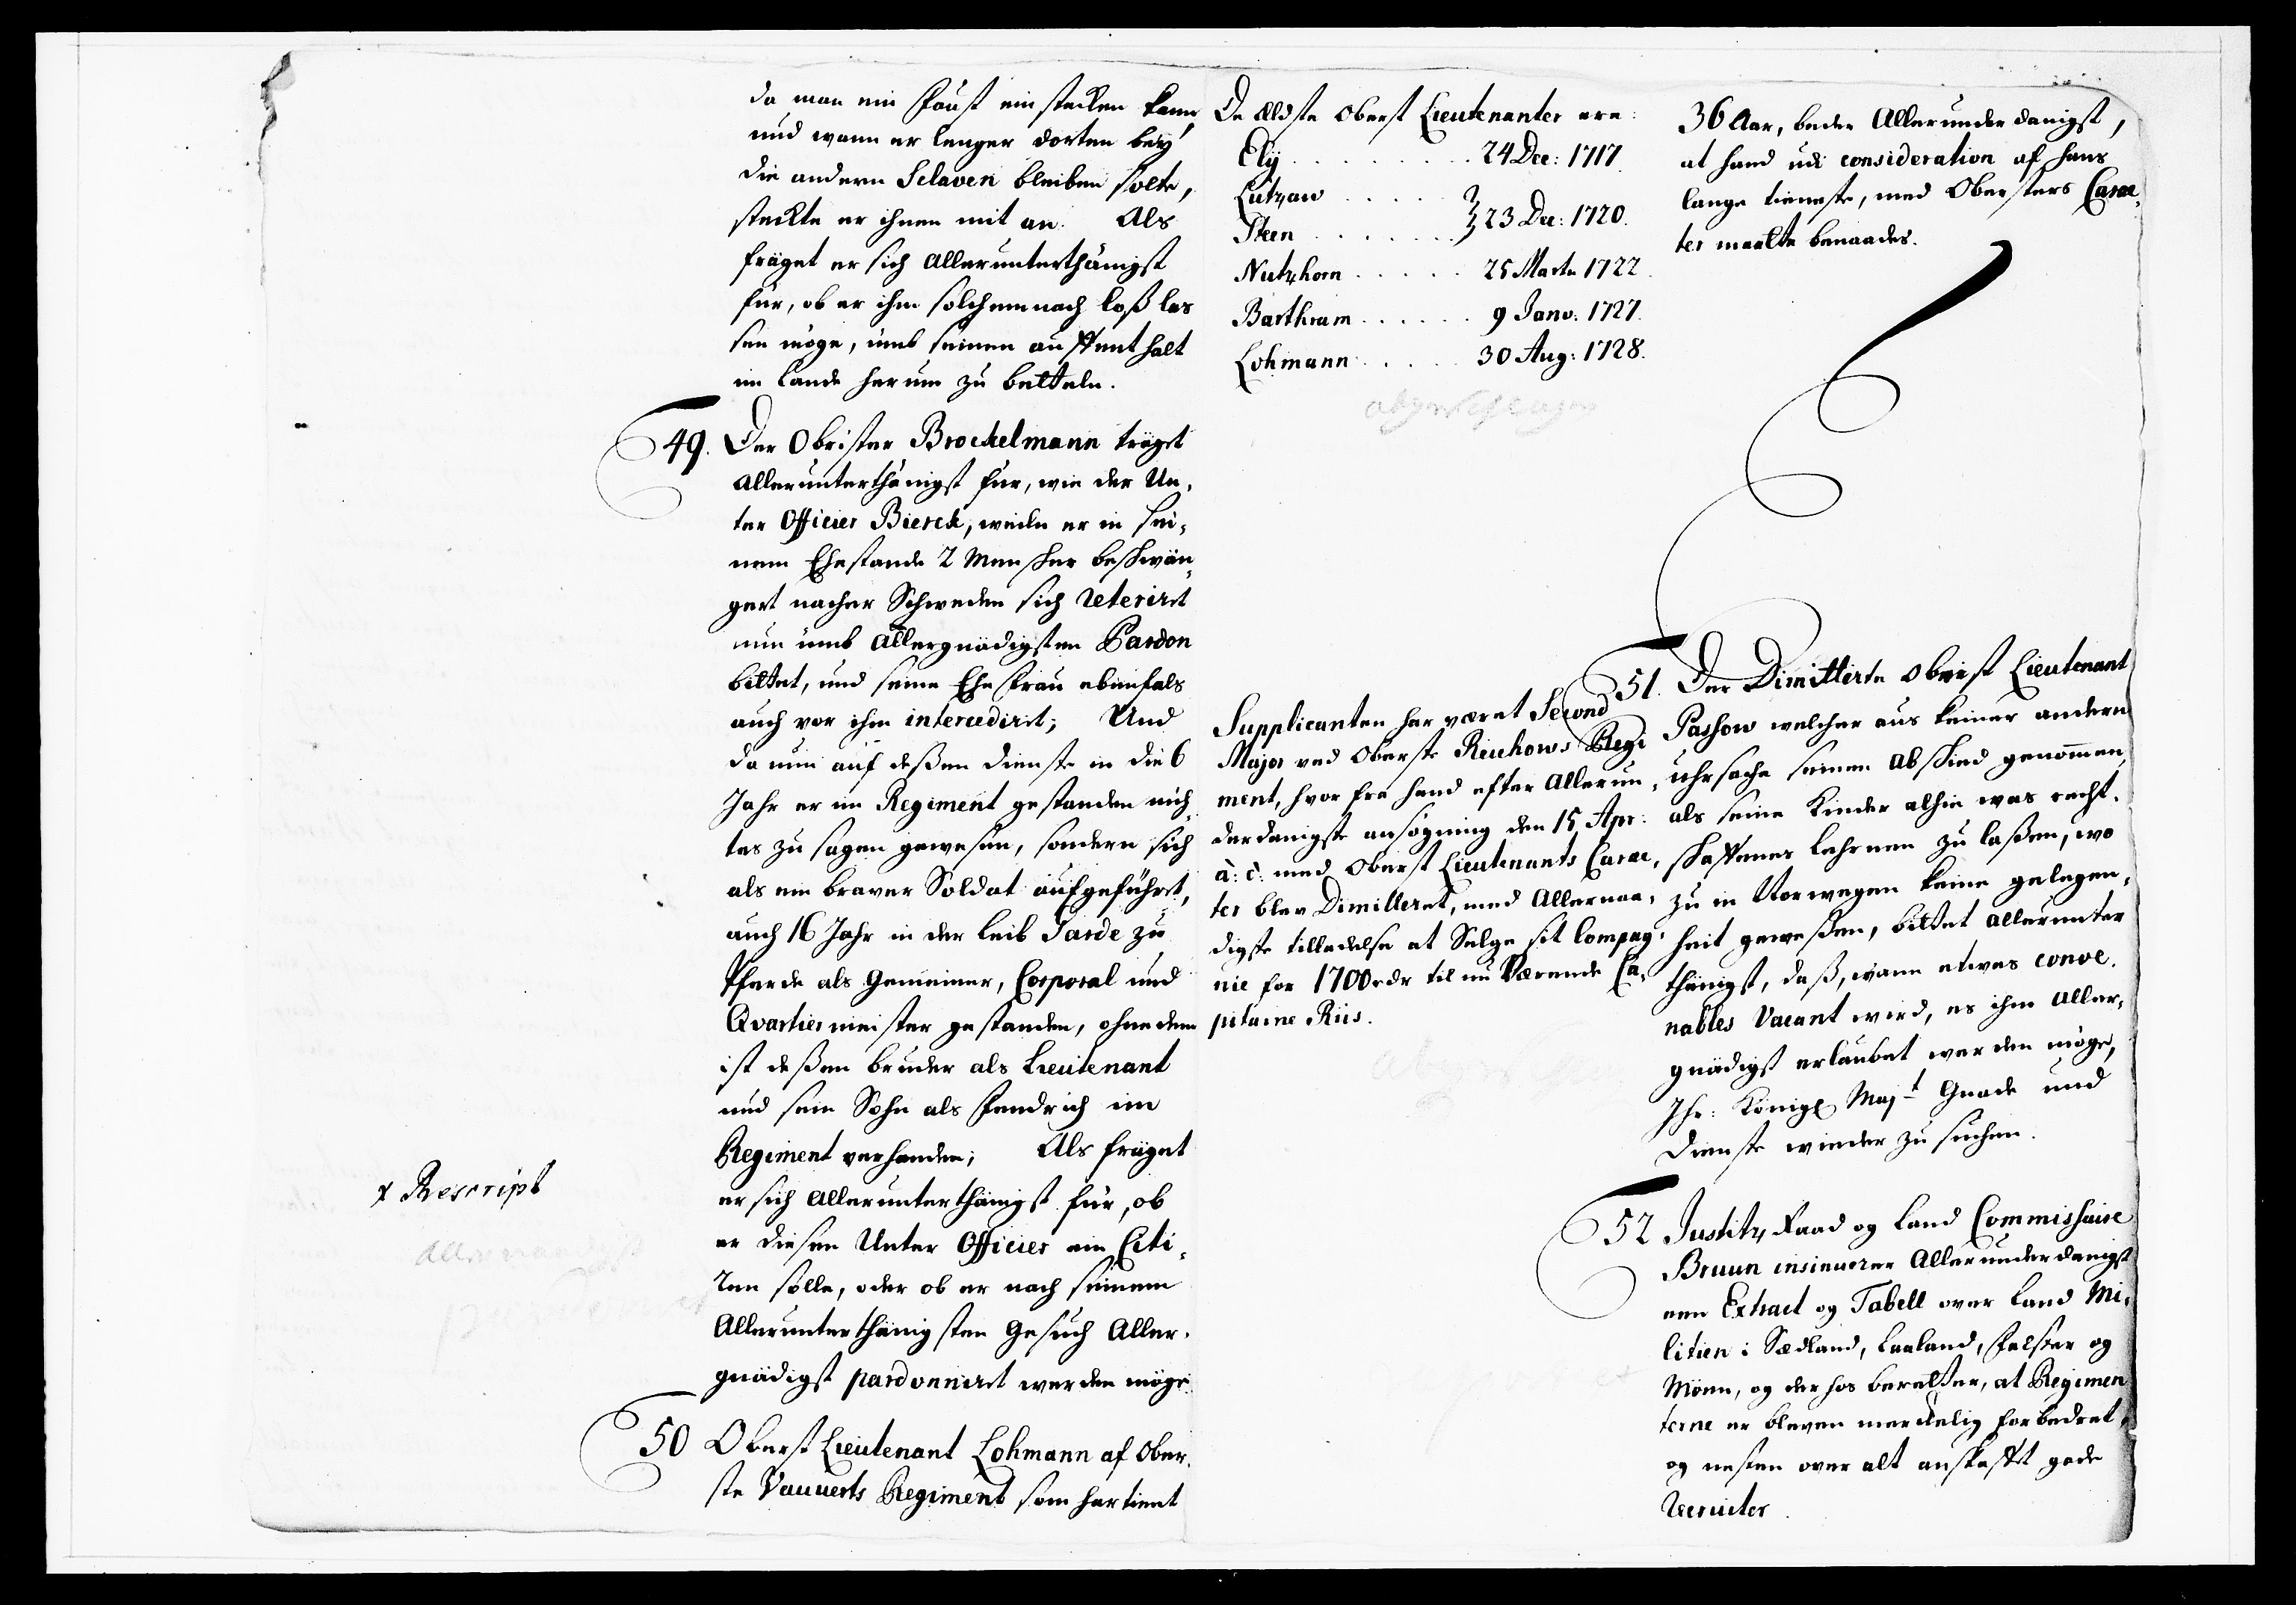 da man ein Faust ein stecken kann,
und wann er lenger dorten beÿ
die andern Sclaven bleiben solte,
steckte er ihnen mit an. Als
fräget er sich allerunterthänigst
für, ob er ihm solchemnach loß las
sen möge, umb seinen auffenthalt
im Lande herum zu betteln.
49. Der Obrister Brockelmann träget
allerunterthänigst für, wie der Un-
ter Officier Bierck, weiln er in sei-
nem Ehestande 2 Menscher beschwän-
gert nacher Schweden sich reterirt
nun umb allergnädigsten Pardon
bittet, und seine Ehe Frau ebenfals
auch vor ihm intercedirt; Und
da nun auf deßen dienste in die 6
Jahr er im Regiment gestanden nich-
tes zu sagen gewesen, sondern sich
als ein braver Soldat aufgeführt,
auch 16 Jahr in der Leib Garde zu
Pferde als Gemeiner, Corporal und
Qvartiermeister gestanden, ohnedem
ist deßen bruder als Lieutenant
und sein Sohn als Fendrich im
Regiment verhanden; Als fräget
er sich allerunterthänigst für, ob
er diesen Unter Officier ein Citi-
ren solle, oder ob er nach seinem
Allerunterthänigsten Gesuch Aller-
gnädigst pardonnirt werden möge.
x Rescript
50 Oberst Lieutenant Lohmann af Ober-
ste Vauverts Regiment som har tient
De Eldste Oberst Lieutenanter ere:
Elÿ . . . . . . . . 24 Dec: 1717
Lützaw . . . . .
Steen . . . . . . } 23 Dec: 1720.
Nutzhorn . . . . . 25 Marti 1722
Barthram . . . . . . 9 Janv: 1727.
Lohmann . . . . . 30 Aug: 1728.
36 Aar, beder Allerunderdanigst,
at hand udi consideration af hans
lange tieneste, med Obersters Carac-
ter maatte benaades.
Supplicanten har været Second
Major ved Oberste Reichows Regi
ment, hvor fra hand efter Allerun-
derdanigste ansøgning den 15 Apr:
a: c: med Oberst Lieutenants Carac-
ter blev Dimitteret, med Allernaa-
digste tilladelse at Selge sit Compag-
nie for 1700 rdr til nu Værende Ca-
pitaine Riis.
51. Der Dimitterte Obrist Lieutenant
Passow welcher aus keiner andern
uhrsache seinen abschied genommen,
als seine Kinder alhie was recht-
schaffenes lehrnen zu laßen, wo
zu in Norwegen keine gelegen-
heit gewesen, bittet allerunter
thänigst, daß, wann etwas conve-
nables Vacant wird, es ihm aller-
gnädigst erlaubet werden möge,
Ihr: Königl Majt Gnade und
dienste wieder zu suchen.
52 Justitz Raad og Land Commissaire
Bruun insinuerer Allerunderdanigst
een Extract og Tabell over Land Mi-
litien i Siælland, Laaland, Falster og
Møen, og derhos beretter, at Regimen
terne er bleven merkelig forbedret
og nesten over alt anskaffet gode
Recruter.